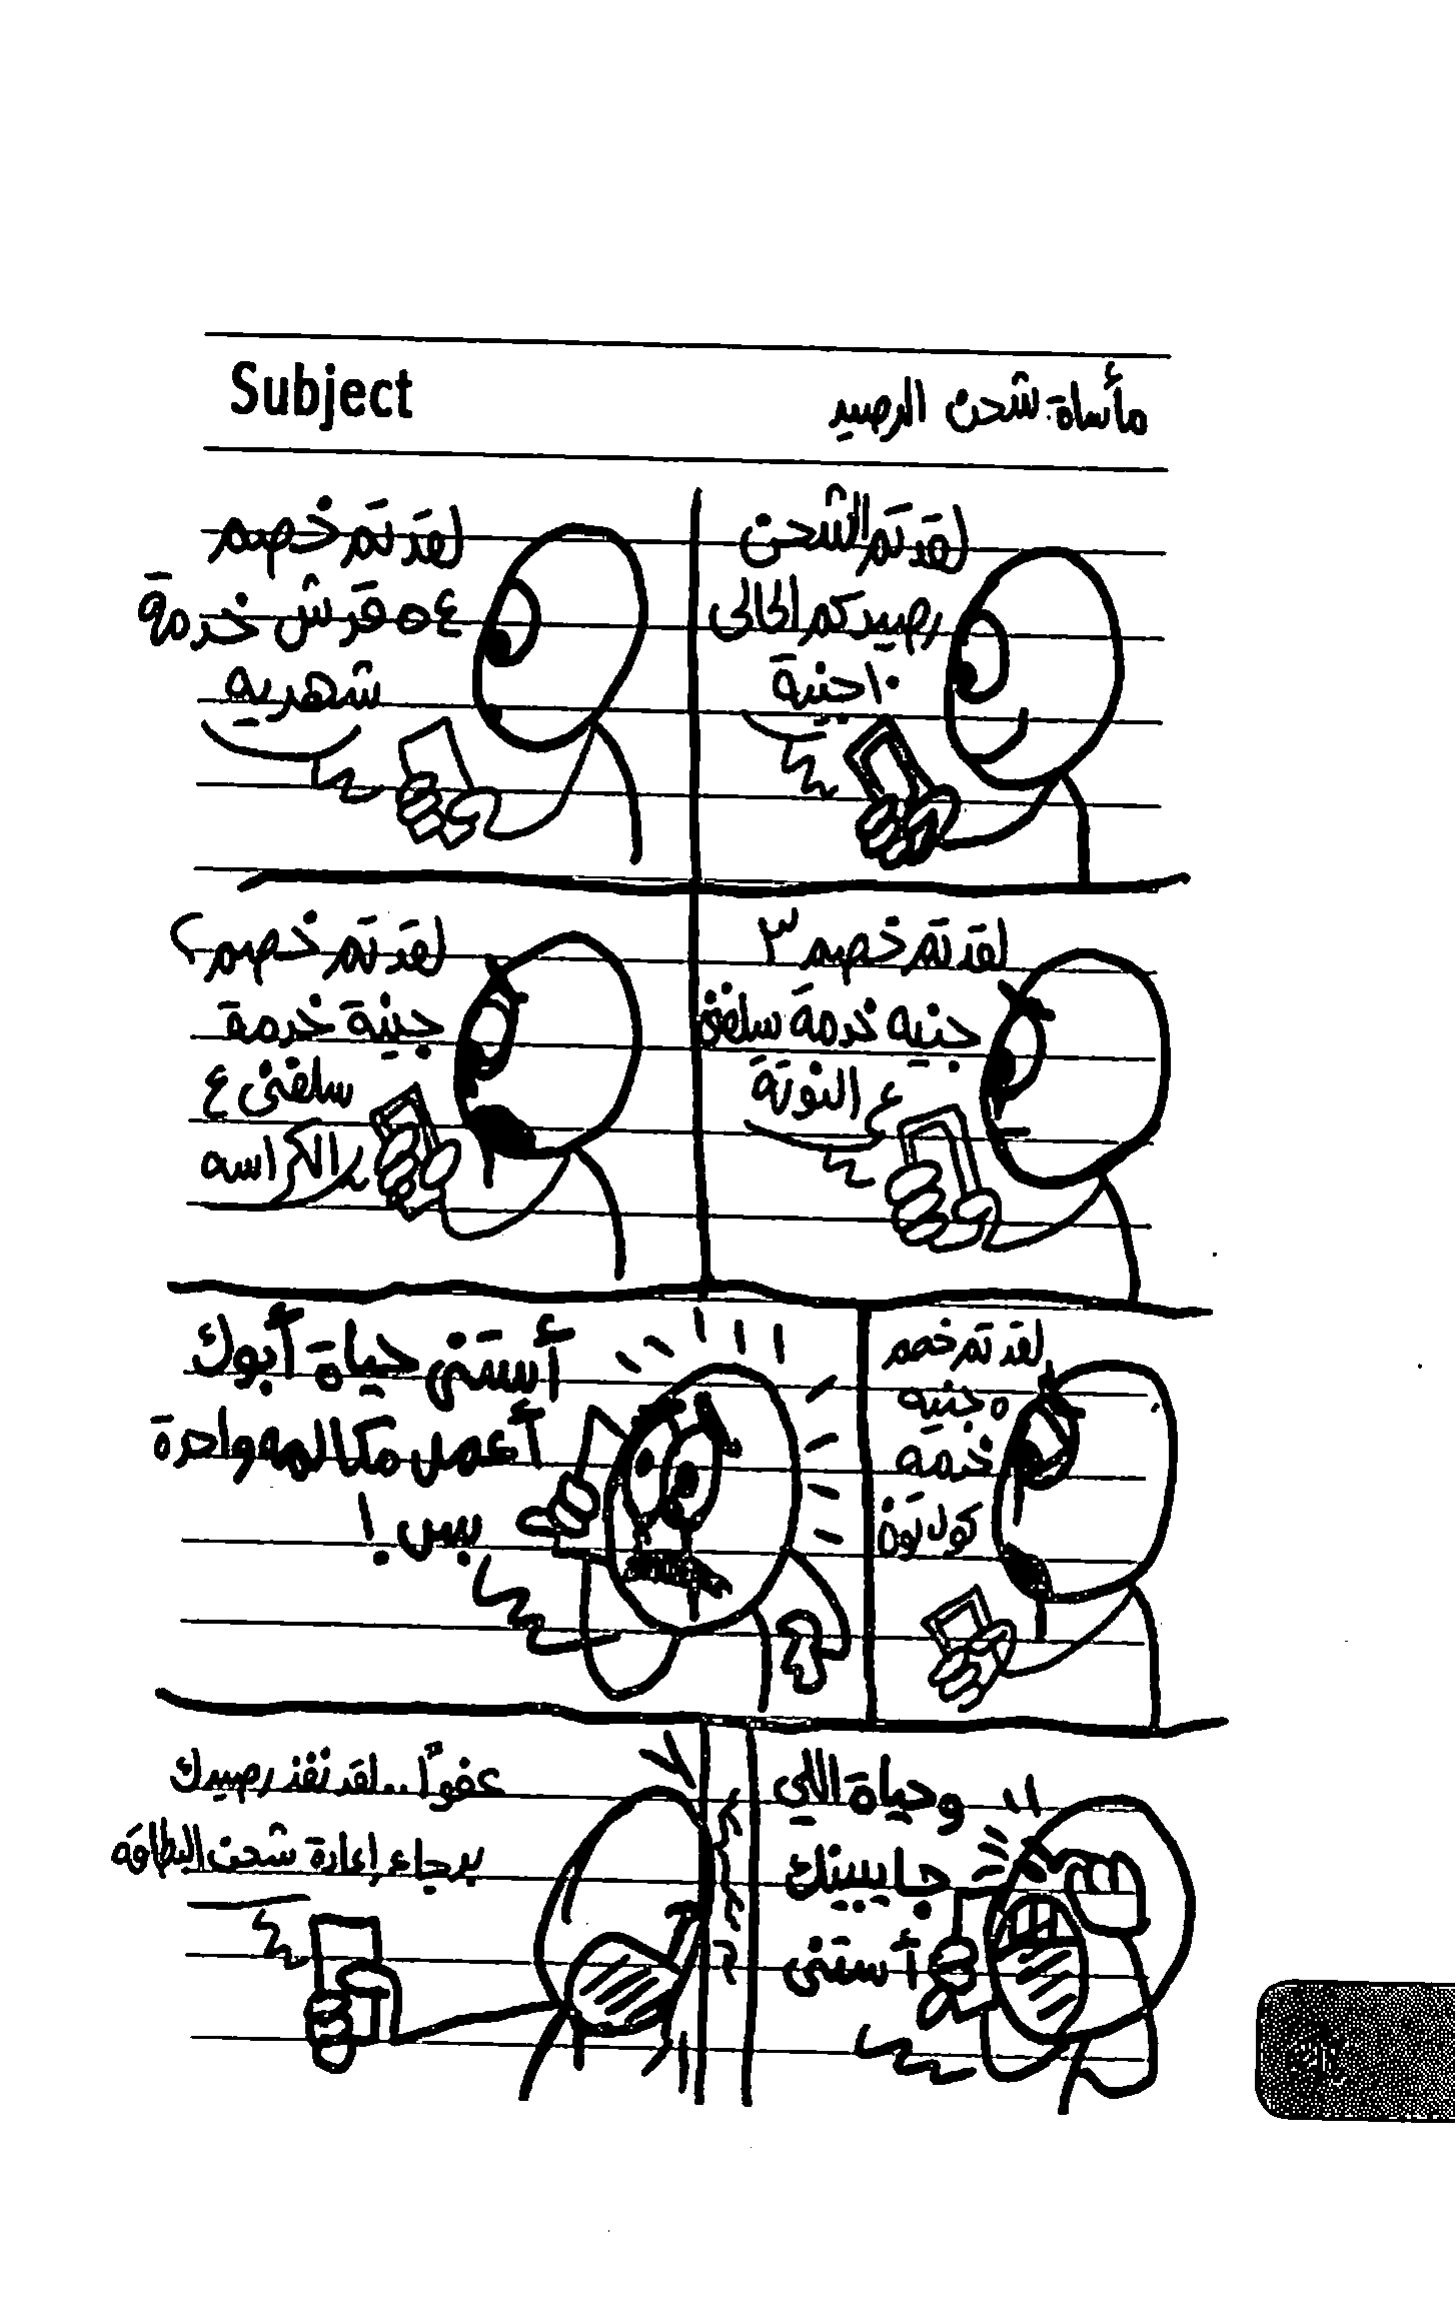 Subject
مأساة شحن الرصيد
لقد تم الشحن
رصيدكم الحالى
١٠ جنية
لقد تم خصم
٥٤ قرش خدمة
شهريه
لقد تم خصم ٣
جنيه خدمة سلفنى
ع النوتة
لقد تم خصم ٢
جنية خدمة
سلفنى ع
الكراسه
لقد تم خصم
٥ جنيه
خدمه
كول تون
أستنى حياة أبوك
أعمل مكالمه واحدة
بس !
وحياة اللي
جايبينك
أستنى
عفواً.. لقد نفذ رصيدك
برجاء إعادة شحن البطاقه